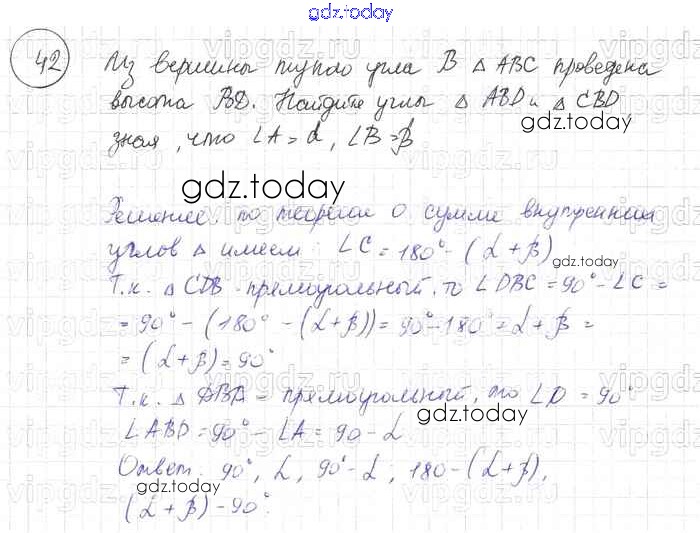 gdz.today
42 Из вершины тупого угла B △ ABC проведена
высота BD. Найдите углы △ ABD и △ CBD
gdz.today
зная, что ∠A = α, ∠B = β
gdz.today
Решение: по теореме о сумме внутренних
углов △ имеем: ∠C = 180° - (α + β)
gdz.today
Т.к. △ CDB - прямоугольный, то ∠DBC = 90° - ∠C =
= 90° - (180° - (α + β)) = 90° - 180° = α + β =
= (α + β) = 90°
Т.к. △ DBA - прямоугольный, то ∠D = 90°
gdz.today
∠ABD = 90° - ∠A = 90 - α
Ответ: 90°, α, 90° - α; 180 - (α + β),
gdz.today
(α + β) - 90°.